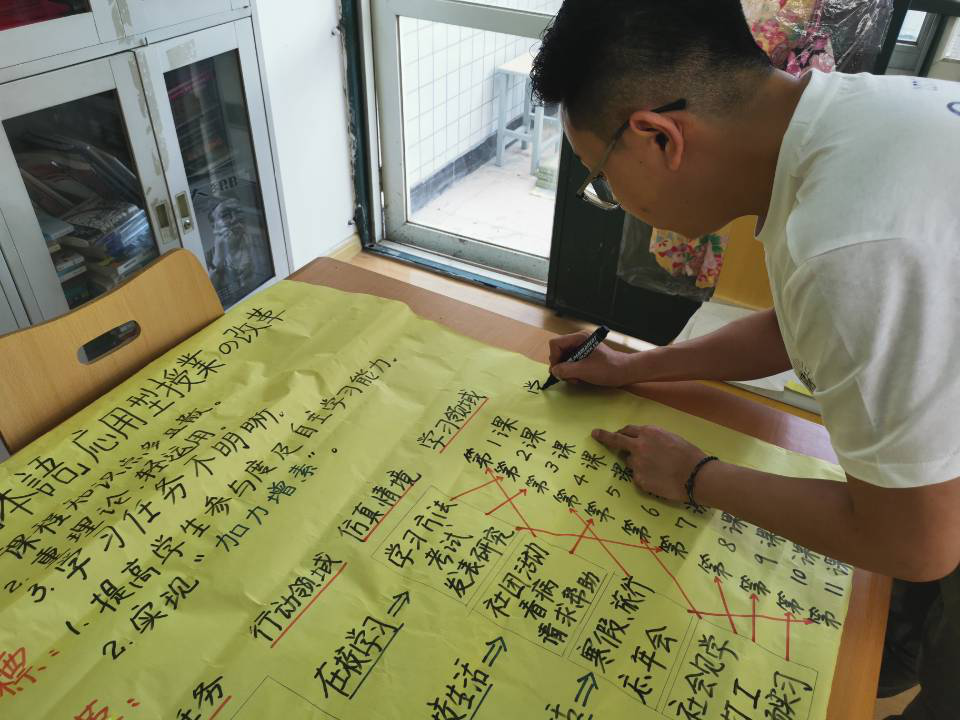 本語応用型授業の改革
课程知识点多且散。
2. 重理论 轻运用。
3. 学习任务不明晰。
1. 提高学生参与度及自主学习能力。
2. 实现“加力增素”。
行动领域
仿真情境
学习领域
在校学习→
学习方法
考试
发表研究
社团活动
看病
请求帮助
寒假.旅行
忘年会
社会见学
第1课
第2课
第3课
第4课
第5课
第6课
第7课
第8课
第9课
第10课
第11课